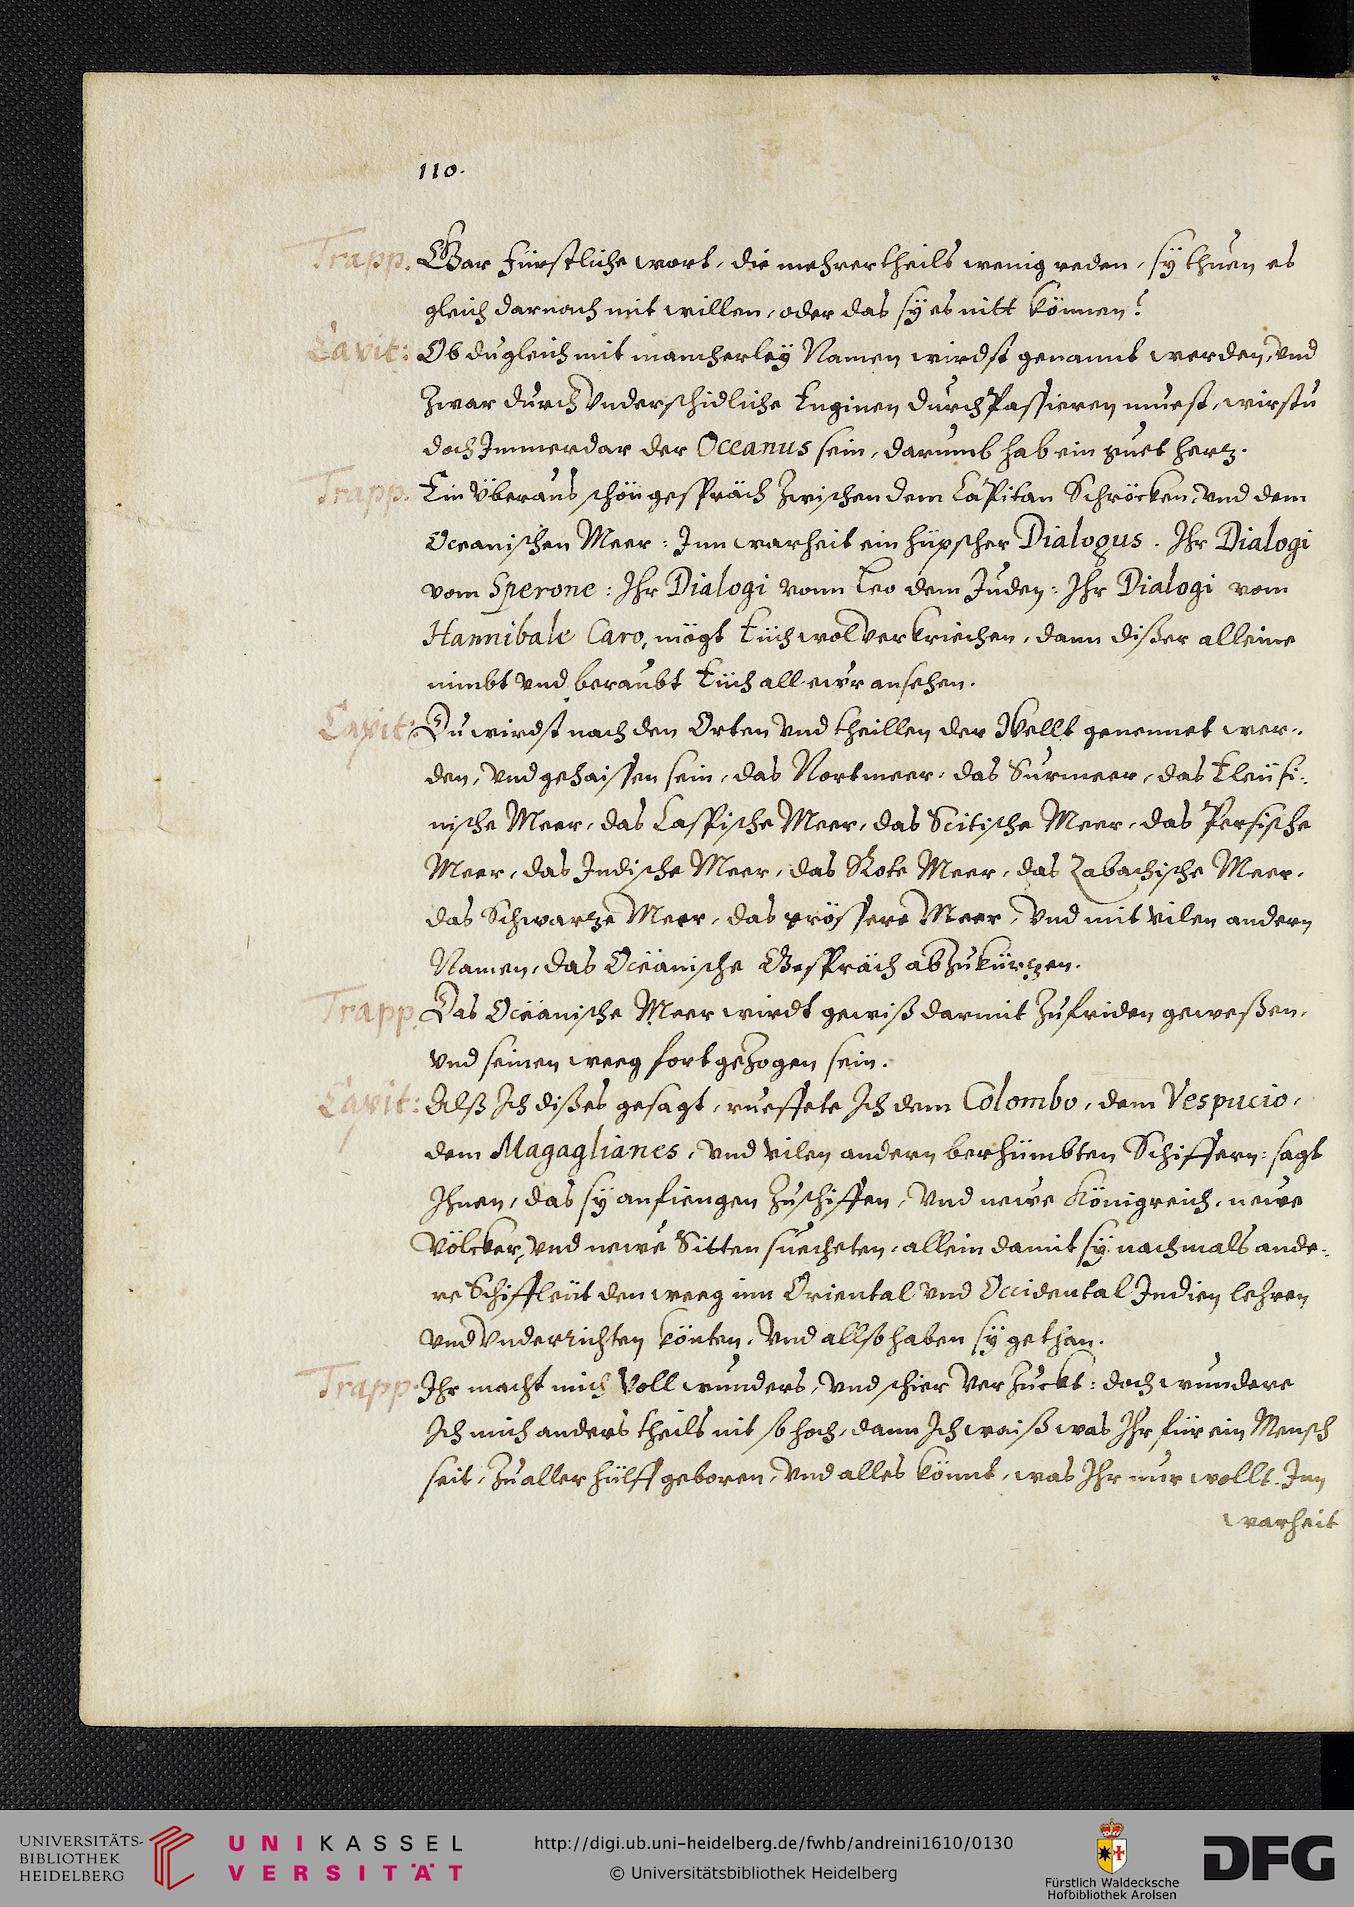 110.
Trapp. Gar Fürstliche wort, die mehrertheils wenig reden, sÿ thuen es
gleich darnach mit willen, oder das sÿ es nitt können?
Capit: Ob du gleich mit mancherleÿ Namen wirdst genannt werden, vnd
zwar durch vnderschidliche Enginen durch Passieren muest, wirstu
doch Immerdar der Oceanus sein, darumb hab ein guet hertz.
Trapp. Ein überaus schön gespräch zwischen dem Capitan Schröcken, vnd dem
Oceanischen Meer: Inn warheit ein hüpscher Dialogus. Ihr Dialogi
vom Sperone: Ihr Dialogi vonn Leo dem Juden: Ihr Dialogi vom
Hannibale Caro, mögt Euch wol verkriechen, dann dißer alleine
nimbt vnd beraubt Euch all ewr ansehen.
Capit: Du wirdst nach den Orten vnd theillen der Wellt genennet wer-
den, vnd gehaissen sein, das Nortmeer, das Surmeer, das Eleüsi-
nische Meer, das Caspische Meer, das Scitische Meer, das Persische
Meer, das Indische Meer, das Rote Meer, das Zabachische Meer,
das Schwartze Meer, das grössere Meer, vnd mit vilen andern
Namen, das Oceanische Gespräch abzukürtzen.
Trapp. Das Oceanische Meer wirdt gewiß darmit zufriden geweßen,
vnd seinen weeg fortgezogen sein.
Capit: Alß Ich dißes gesagt, rueffete Ich dem Colombo, dem Vespucio,
dem Magaglianes, vnd vilen andern berhümbten Schiffern: sagt
Ihnen, das sÿ anfiengen zuschiffen, vnd newe Königreich, newe
Völcker, vnd newe Sitten suecheten, allein damit sÿ nachmals ande-
re Schiffleüt den weeg inn Oriental vnd Occidental Indien lehren
vnd vnderrichten könten, vnd allso haben sÿ gethan.
Trapp. Ihr macht mich voll wunders, vnd schier verzuckt: doch wundere
Ich mich anders theils nit so hoch, dann Ich waiß was Ihr für ein Mensch
seit, zu aller hülff geboren, vnd alles könnt, was Ihr nur wollt. Inn
warheit
UNIVERSITÄTS-
BIBLIOTHEK
HEIDELBERG
UNIKASSEL
VERSITÄT
http://digi.ub.uni-heidelberg.de/fwhb/andreini1610/0130
© Universitätsbibliothek Heidelberg
Fürstlich Waldecksche
Hofbibliothek Arolsen
DFG